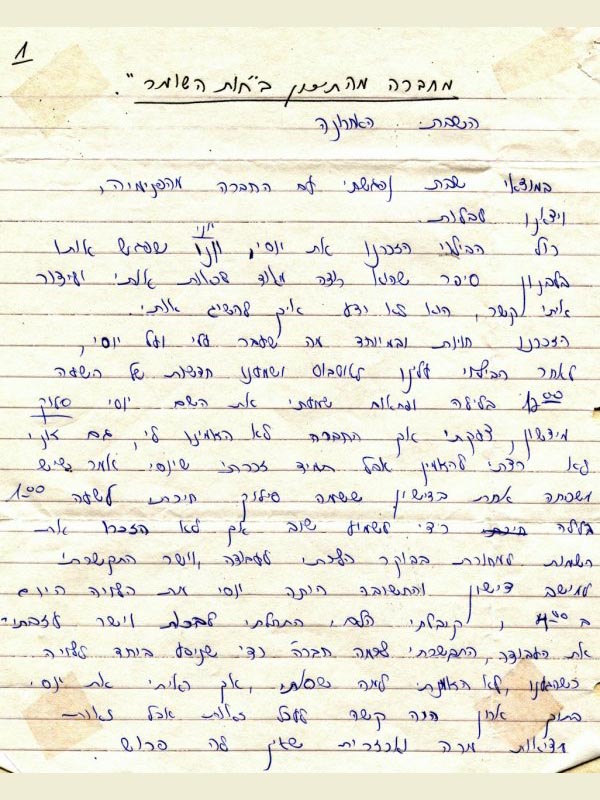 1
מחברה מהתיכון ב"חוות השומר".
השבת האחרונה
במוצאי שבת נפגשתי עם החברה מהפנימיה,
ויצאנו לבלות.
כול הבילוי הזכרנו את יוסי, יוני שפגש אותו
בלבנון סיפר שהוא רוצה מאוד לראות אותי וליצור
איתי קשר, הוא לא ידע איך להשיג אותי.
הזכרנו חויות ובמיוחד מה שעבר עלי ועל יוסי,
לאחר הבילוי עלינו לאוטובוס ושמענו חדשות של השעה
12:00 בלילה ופתאום שמעתי את השם יוסי סלוק
מידשון, צעקתי אך החברה לא האמינו לי, גם אני
לא רציתי להאמין אבל תמיד זכרתי שיוסי אמר שיש
משפחה אחת בדישון ששמה סילוק חיכתי לשעה 1:00
בלילה כדי לשמוע שוב אך לא הזכרו את
השמות למחורת בבוקר הלכתי לעבודה, וישר התקשרתי
למושב דישון והתשובה היתה יוסי מת הלוויה היום
ב 4:00, קיבלתי הלם, התחלתי לבכות וישר עזבתי
את העבודה, התקשרתי לכמה חברה כדי שניסע ביחד ללוויה
כשהגענו, לא האמנתי למה ששמעתי, אך ראיתי את יוסי
בתוך ארון היה קשה לעכל זאות אבל זאות
מציאות מרה ואכזרית שאין לה פרוש